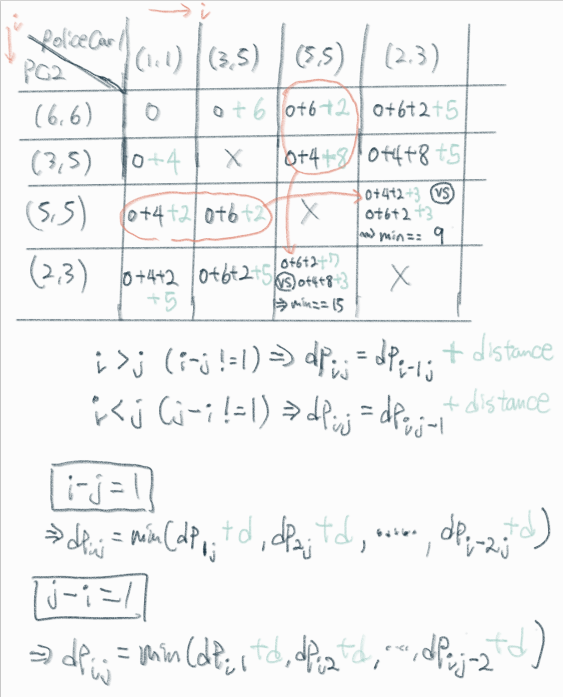 → i
i
↓
PoliceCar1
PC2
(1,1) (3,5) (5,5) (2,3)
(6,6) 0 0+6 0+6+2 0+6+2+5
(3,5) 0+4 X 0+4+8 0+4+8+5
(5,5) 0+4+2 0+6+2 X 0+4+2+3 VS
0+6+2+3
⇒ min== 9
(2,3) 0+4+2
+5 0+6+2+5 0+6+2+7
VS 0+4+8+3
⇒ min== 15 X
i>j (i-j !=1) ⇒ dp_ij = dp_i-1j + distance
i<j (j-i !=1) ⇒ dp_ij = dp_ij-1 + distance
i-j=1
⇒ dp_ij = min(dp_1j+d, dp_2j+d, ....., dp_i-2j+d)
j-i=1
⇒ dp_ij = min(dp_i1+d, dp_i2+d, ..., dp_ij-2+d)